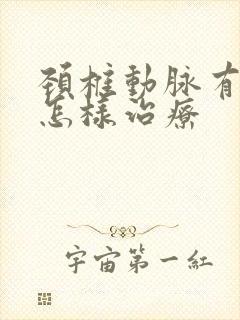 頚椎動脉有
怎樣治療
宇宙第一紅